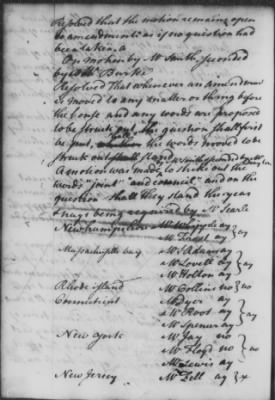 resolved that the motion remains open
to amendments as if no question had
been taken.
On motion by Mr Smith, seconded
by Mr Burke
Resolved That whenever an amendment
is moved to any matter or thing before
the house and any words are proposed
to be struck out, the question shall first
be put, the words moved to be
struck out shall stand
Mr Smith seconded by
A motion was made to strike out the
words "joint" and and on the
question shall they stand the yeas
& nays being required by Mr Searle
New hampshire Mr Whipple ay
Mr ay
Massachusetts bay Mr S Adams ay
Mr Lovell ay } ay
Mr Holton ay
Rhode island Mr Collins no } no
Connecticut Mr Dyer ay
Mr Root ay } ay
Mr Spencer ay
New York Mr Jay no
Mr Floyd no } no
Mr Lewis ay
New Jersey Mr Fell ay } x